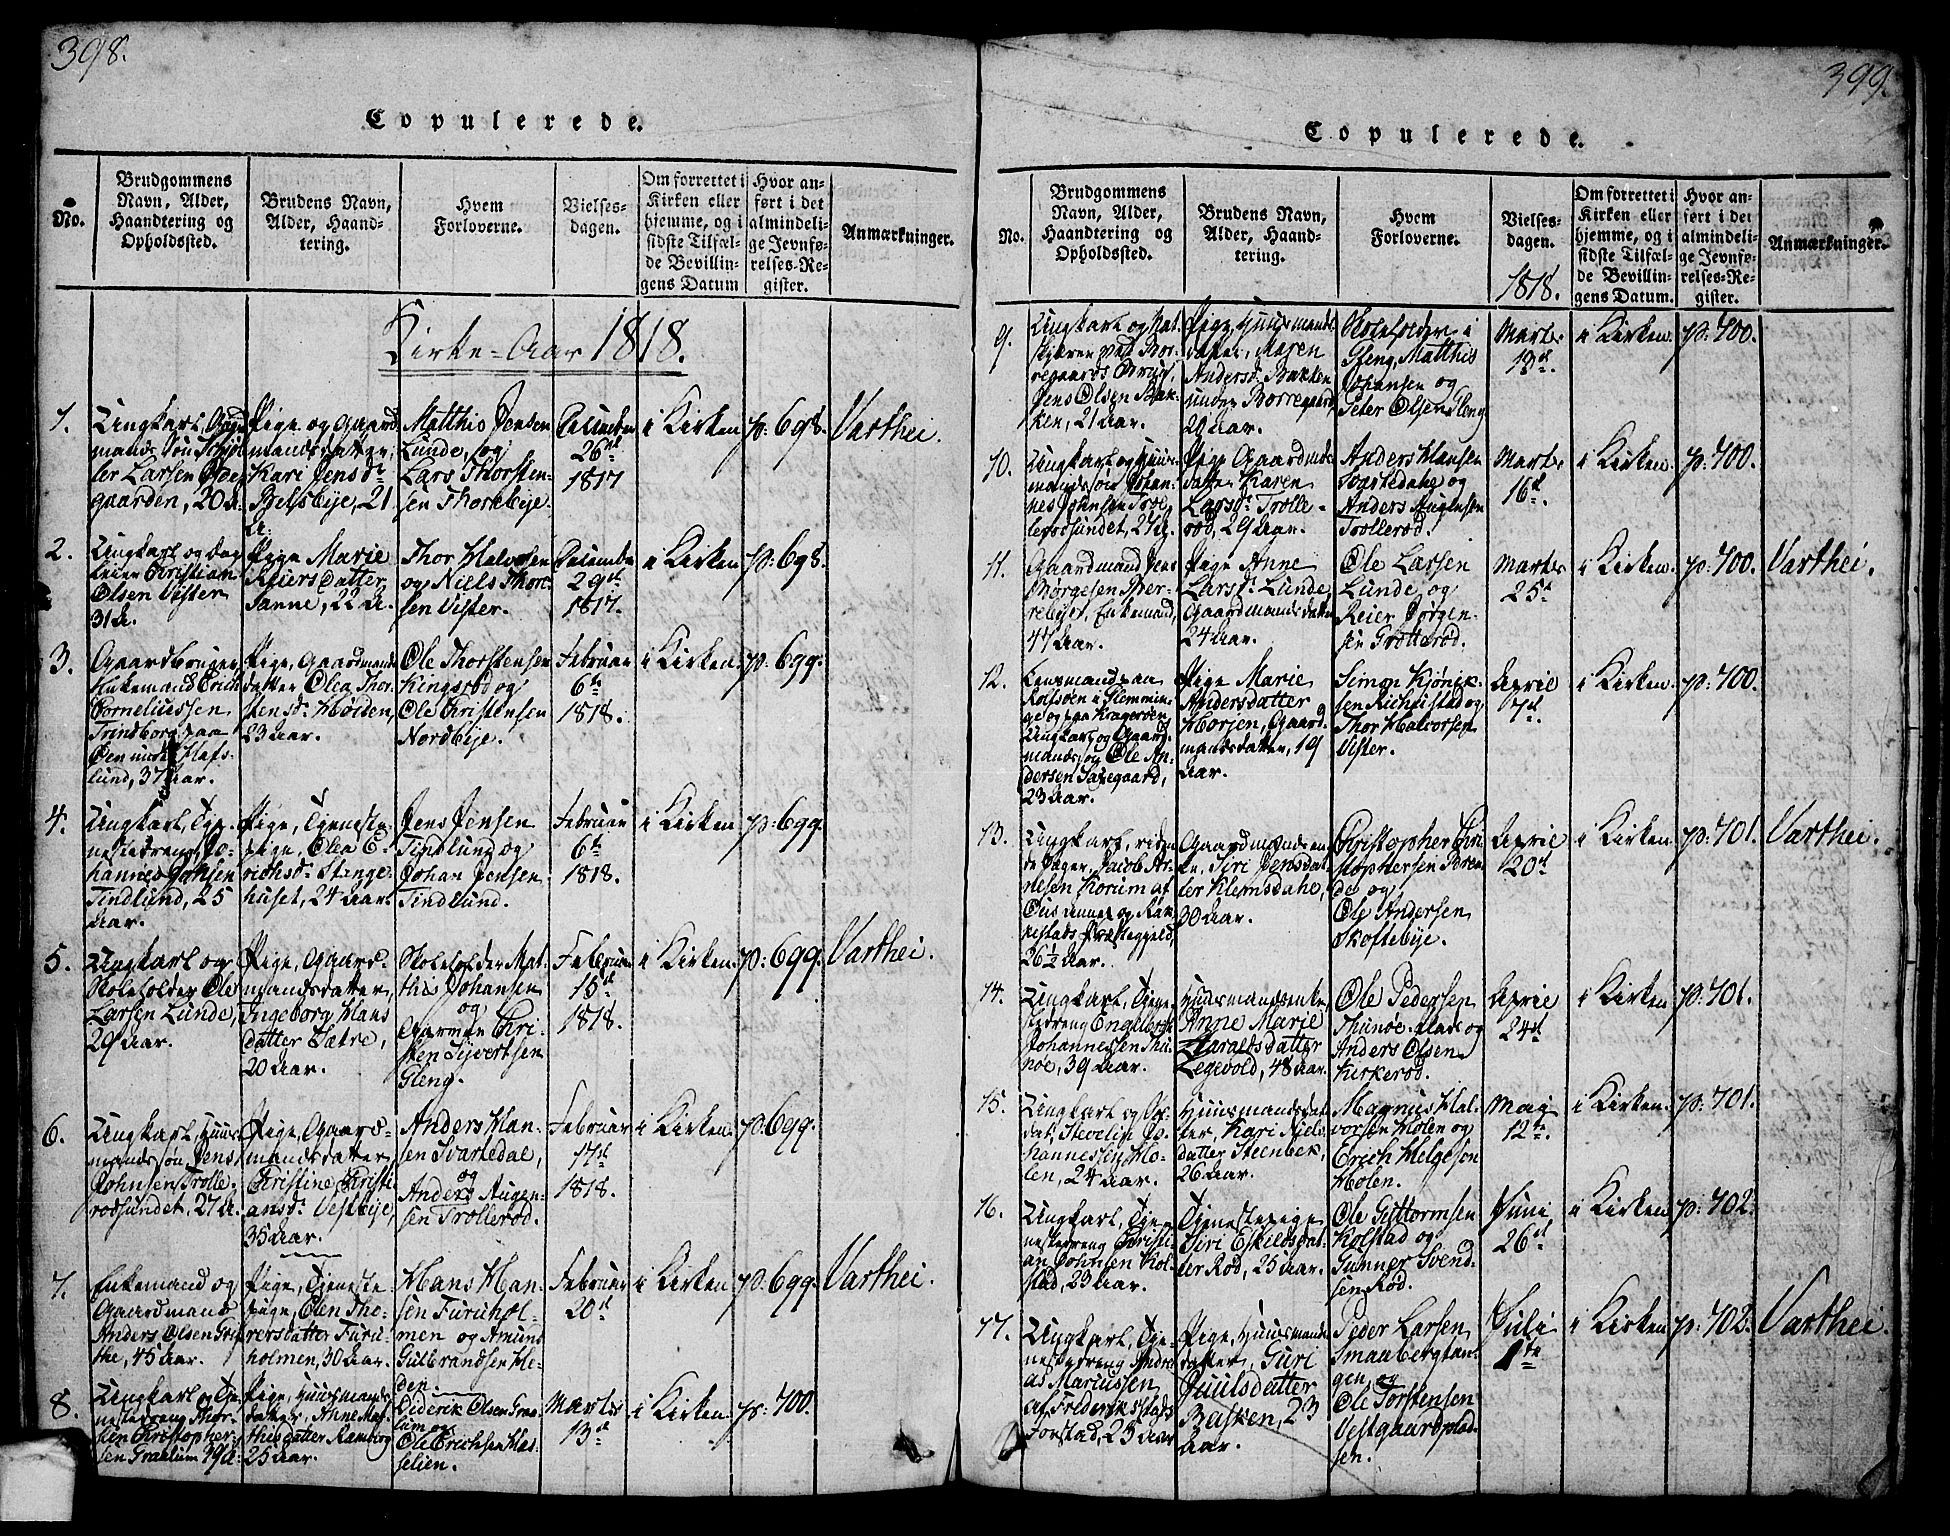 398.
Copulerede.
No.
Brudgommens
Navn, Alder,
Haandtering og
Opholdssted.
Brudens Navn,
Alder, Haand-
tering.
Hvem
Forloverne.
Vielses-
dagen.
Om forrettet i
Kirken eller
hjemme, og i
sidste Tilfæl-
de Bevillin-
gens Datum
Hvor an-
ført i det
almindeli-
ge Jevnfø-
relses-Re-
gister.
Anmærkninger.
Kirke-Aar 1818.
1.
Ungkarl,
mands Søn
ler Larsen
gaarden, 20 A.
Pige og Gaard
mandsdatter,
Kari Jensdr
21
A.
Matthis Jensen
Lunde, og
Lars Thorsten-
sen Thorkebye.
December
26de
1817
i Kirken
p: 698.
Varthei.
2.
Ungkarl og
Christian
Olsen Vister
31 A.
Pige Marie
Reiersdatter
Sanne, 22 A.
Thor Halvorsen
og Niels Thor-
sen Vister.
December
29de
1817.
i Kirken
p: 698.
3.
Gaardbruger
Enkemand Erich
Corneliussen
Trindborg paa
Øen under Hafs-
lund, 37 Aar.
Pige, Gaardmands
datter Olea Thor-
stensdr Høiden,
23 Aar.
Ole Thorstensen
Kingsrød og
Ole Christensen
Nordbye.
Februar
6te
1818.
i Kirken.
p: 699.
4.
Ungkarl, Tje-
nestedreng Jo-
hannes Johnsen
Tindlund, 25
Aar.
Pige, Tjeneste-
pige, Olea E-
richsdr Stenge-
huset, 24 Aar.
Jens Jensen
Tindlund og
Johan Jensen
Tindlund.
Februar
6te
1818.
i Kirken
p: 699.
5.
Ungkarl og
Skoleholder Ole
Larsen Lunde,
29 Aar.
Pige, Gaard-
mandsdatter,
Ingeborg Hans
datter Sætre,
20 Aar.
Skoleholder Mat-
this Johansen
og
Gaarmen Chri-
sten Syvertsen
Gleng.
Februar
15de
1818.
i Kirken.
p: 699.
Varthei.
6.
Ungkarl, Huus-
mandssøn, Jens
Johnsen Trolle-
rødsundet, 27 A.
Pige, Gaard-
mandsdatter
Christine Christi-
ansdr Vestbye,
35 Aar.
Anders Han-
sen Svartedal,
og
Anders Augen-
sen Trollerød.
Februar
17de
1818.
i Kirken.
p: 699.
7.
Enkemand og
Gaardmand
Anders Olsen
45 Aar.
Pige, Tjeneste
pige, Olen Tho-
rersdatter Furu-
holmen, 30 Aar.
Hans Han-
sen Furuhol-
men og Amund
Gulbrandsen He-
den.
Februar
20de
i Kirken
p: 699.
Varthei.
8.
Ungkarl og Tje-
nestedreng Thor-
sten Christopher-
sen Graalum 19 A.
Pige, Huusmands
datter, Anne Mat-
thisdatter Ramberg
25 Aar.
Diderik Olsen Graa-
lum og
Ole Erichsen Has-
selien.
Marts
13de
i Kirken.
p: 700.
399.
Copulerede.
No.
Brudgommens
Navn, Alder,
Haandtering og
Opholdssted.
Brudens Navn,
Alder, Haand-
tering.
Hvem
Forloverne.
Vielses-
dagen.
1818.
Om forrettet i
Kirken eller
hjemme, og i
sidste Tilfæl-
de Bevillin-
gens Datum.
Hvor an-
ført i det
almindeli-
ge Jevnfø-
relses-Re-
gister.
Anmærkninger.
9.
Ungkarl og
ved Bor-
regaards Brug,
Jens Olsen Bak-
ken, 21 Aar.
Pige, Huusmands
datter, Maren
Andersdr Bakken
under Borregaard
29 Aar.
Skoleholder i
Gleng, Matthis
Johansen og
Peter Olsen Gleng
Marts
13de
i Kirken.
p: 700.
10.
Ungkarl og Huus-
mandssøn Johan-
nes Johnsen Trol-
lerødsundet, 27 A.
Pige Gaardmds
datter Karen
Larsdr Trolle-
rød, 29 Aar.
Anders Hansen
Svartedahl og
Anders Augensen
Trollerød.
Marts
16de
i Kirken.
p: 700.
11.
Gaardmand Jens
Børgesen
Enkemand,
47 Aar.
Pige Anne
Larsdr Lunde
Gaardmandsdatter
24 Aar.
Ole Larsen
Lunde og
Reier Jørgen-
sen Grotterød.
Marts
25de
i Kirken.
p: 700.
Varthei.
12.
Lensmand paa
Rolfsøen i Glemmin-
ge og paa Kragerøen
Ungkarl og Gaard
mandssøn Ole An-
dersen
23 Aar.
Pige Marie
Andersdatter
Horjen, Gaard-
mandsdatter, 19
Aar.
Simon
sen og
Thor Halvorsen
Vister.
April
7de
i Kirken.
p: 700.
13.
Ungkarl, riden
de Jæger, Jacob Ar-
nesen Korum af
og Rak-
kestads Præstegjeld,
26½ Aar.
Gaardmandsen-
ke, Siri Jensdat-
ter Klemsdahl,
30 Aar.
Christopher Chri-
stophersen
og
Ole Andersen
Skoftebye.
April
20de
i Kirken.
p: 701.
Varthei.
14.
Ungkarl, Tjene-
stedreng Engelbreth
Johannessen Thu-
nøe, 39 Aar.
Huusmandsenke
Anne Marie
Haraldsdatter
Legevold, 48 Aar.
Ole Pedersen
Thunøe og
Anders Olsen
Kirkerød.
April
24de
i Kirken
p: 701.
15.
Ungkarl og Sol-
dat, Jo-
hannessen Ho-
len, 24 Aar.
Huusmandsdat-
ter, Kari Niels
datter Steenbek,
26 Aar.
Magnus Hal-
vorsen Holen og
Erich Helgesen
Holen.
May
12te.
i Kirken.
p: 701.
16.
Ungkarl, Tje-
nestedreng Christi-
an Johnsen Kol-
stad, 23 Aar.
Tjenestepige
Siri Eskildsdat-
ter Rød, 25 Aar.
Ole Guttormsen
Kolstad og
Gunner Svend-
sen Rød.
Juni
26de
i Kirken.
p: 702.
17.
Ungkarl, Tje-
nestedreng Andre-
as Mariussen
af Frederikstads
Forstad, 23 Aar
Pige, Huusmands
datter, Guri
Juulsdatter
Bakken, 23
Aar.
Peder Larsen
Smaabergtan-
gen, og
Ole Torstensen
Vestgaardplad-
sen.
Juli
1te
i Kirken
p: 702.
Varthei.